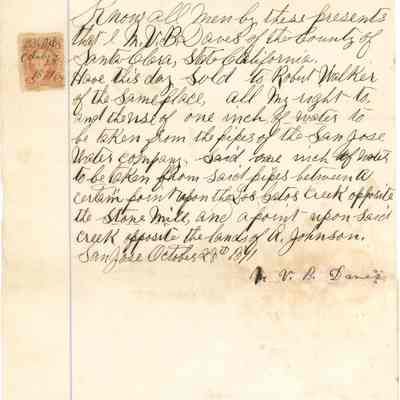 Know all men by these presents
that I M. V. B. Daves of the County of
Santa Clara, State California.
Have this day Sold to Robert Walker
of the Same place, all My right to
and the use of one inch of water to
be taken from the pipes of the San Jose
Water company. Said one inch of water
to be taken from said pipes between a
certain point upon the Los Gatos Creek opposite
the Stone Mill, and a point upon Said
Creek opposite the lands of A. Johnson.
San Jose October 28th 1871
M. V. B. Daves